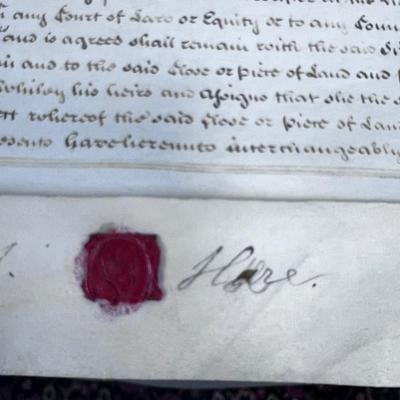 any Court of Law or Equity or to any
and is agreed shall remain with the said
and to the said Close or piece of Land and
his heirs and Assigns that she the
whereof the said Close or piece of
have hereunto interchangeably
Hare.